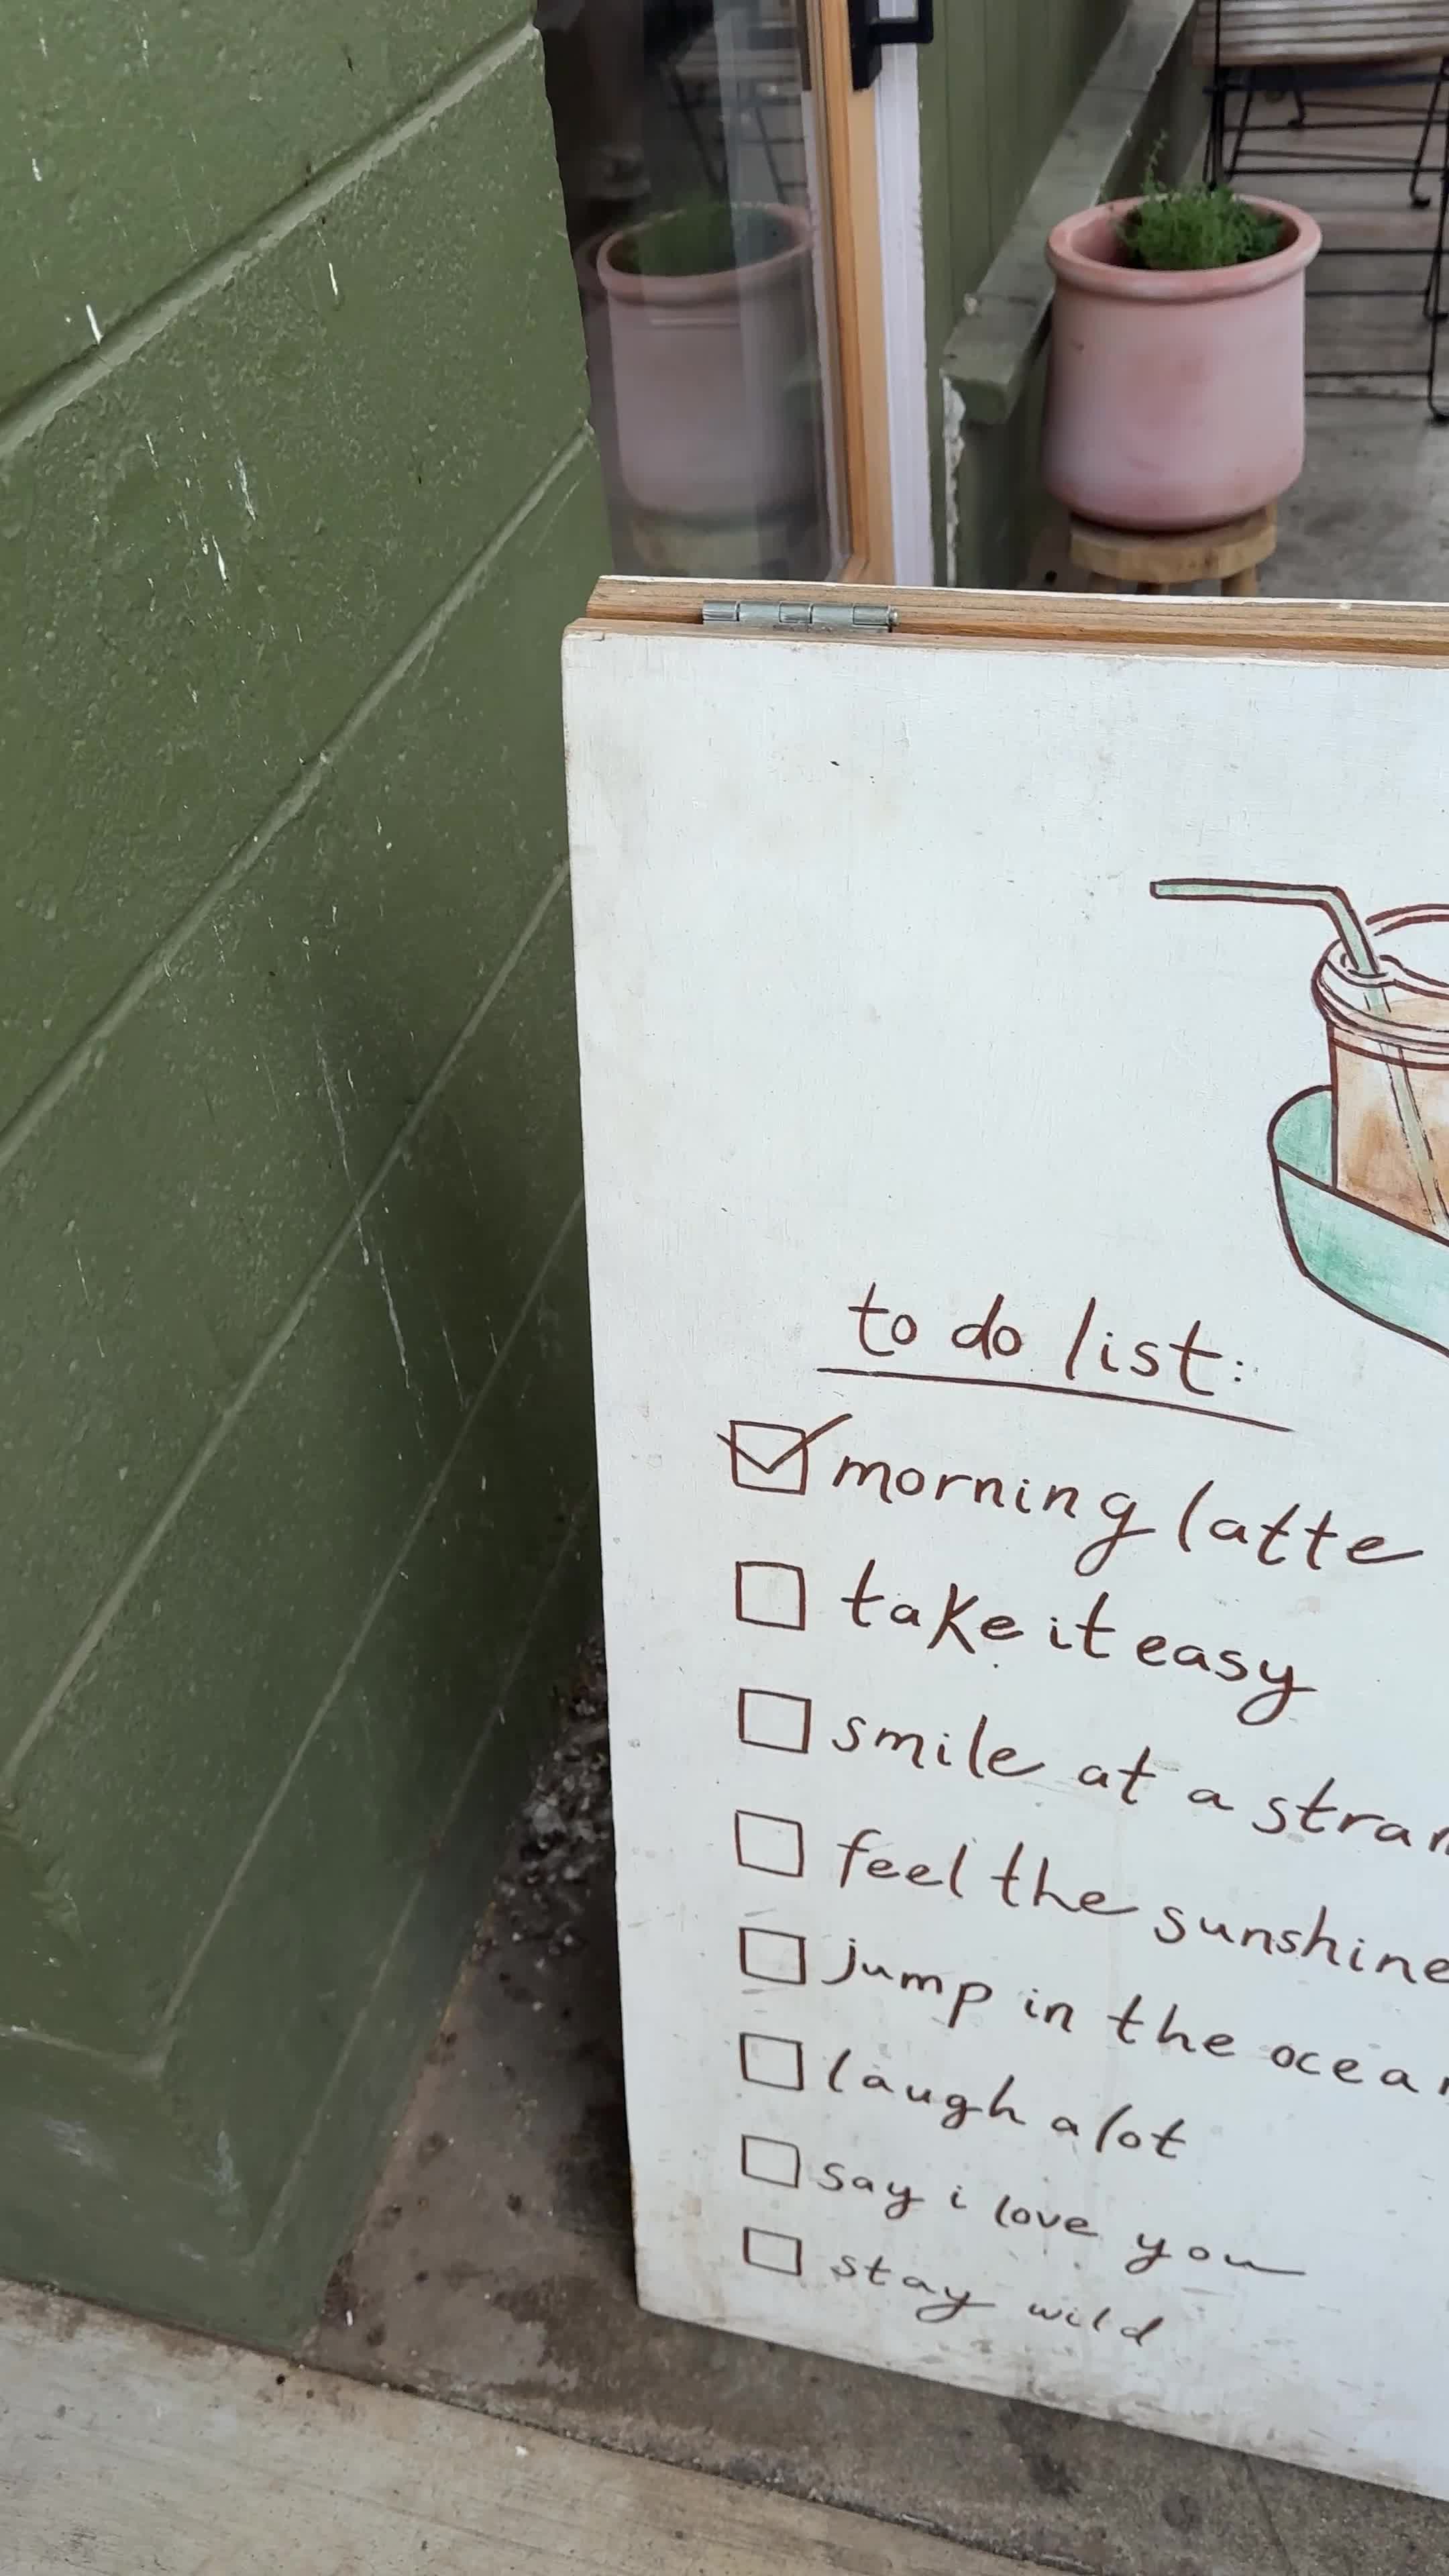 to do list:
morning latte
take it easy
smile at a
feel the sunshine
jump in the
laugh alot
say i love you
stay wild